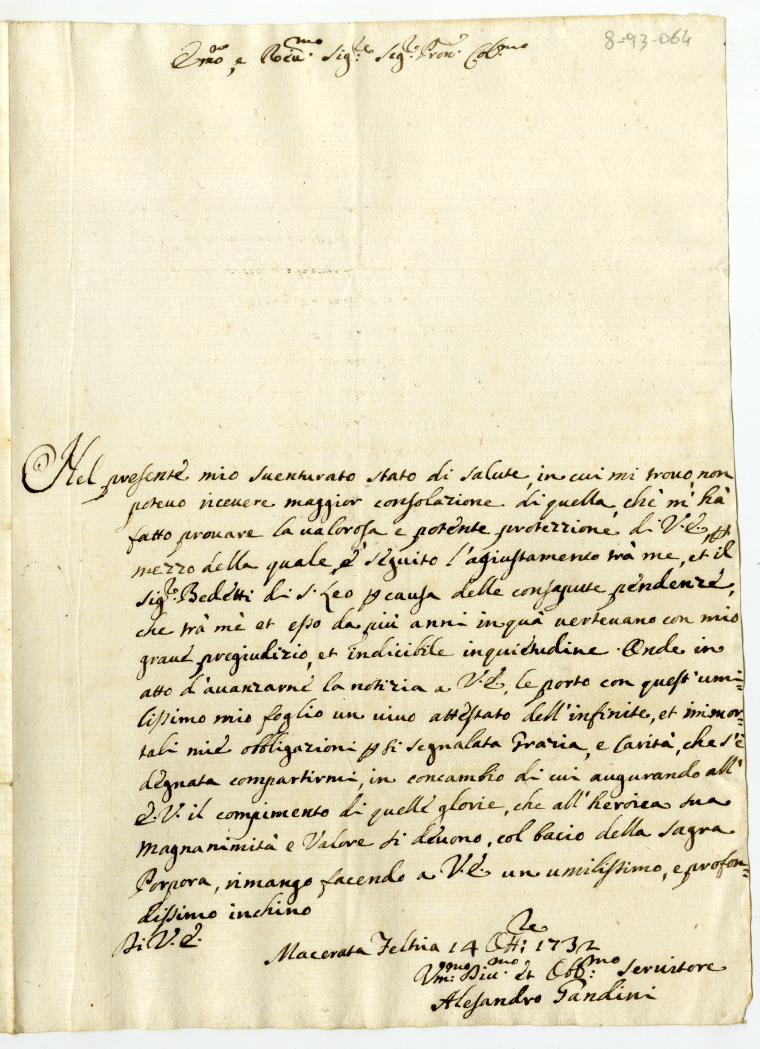 8-93-064
Emo, e Reu.mo Sig.re Sig.re Pron. Col.mo
Nel presente mio suenturato stato di salute, in cui mi trouo, non
poteuo riceuere maggior consolazione di quella, che m'hà
fatto prouare la ualorosa e potente protezzione di V. E., p
mezzo della quale, è seguito l'agiustamento trà me, et il
Sig.re Bedetti di S. Leo p causa delle consapute pendenze,
che trà mè et esso da più anni in quà uerteuano con mio
graue pregiudizio, et indicibile inquietudine. Onde in
atto d'auanzarne la notizia a V. E., le porto con quest'umi=
lissimo mio foglio un uiuo attestato dell'infinite, et immor=
tali mie obbligazioni p si segnalata Grazia, e Carità, che s'è
degnata compartirmi, in concambio di cui augurando all'
E. V. il compimento di quelle glorie, che all'heroica sua
magnanimità e Valore si deuono, col bacio della Sagra
Porpora, rimango facendo a V. E. un umilissimo, e profon=
dissimo inchino
Di V. E.
Macerata Feltria 14 Ott:re 1732
Vm:mo Diu:mo et Obb:mo Seruitore
Alesandro Gandini